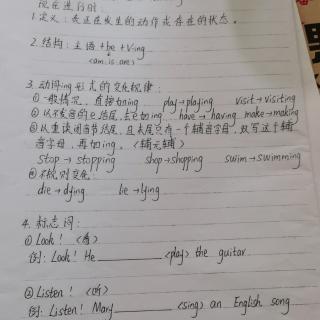 现在进行时:
1.定义:表正在发生的动作或存在的状态。
2.结构:主语+be+Ving
(am.is.are)
3.动词ing形式的变化规律:
①一般情况,直接加ing play→playing visit→visiting
②以不发音的e结尾,去e加ing have→having make→making
③以重读闭音节结尾,且末尾只有一个辅音字母,双写这个辅
音字母,再加ing。(辅元辅)
stop→stopping shop→shopping swim→swimming
④不规则变化:
die→dying lie→lying
4.标志词:
①Look!(看)
例:Look! He ________ <play> the guitar.
②Listen!(听)
例:Listen! Mary ________ <sing> an English song